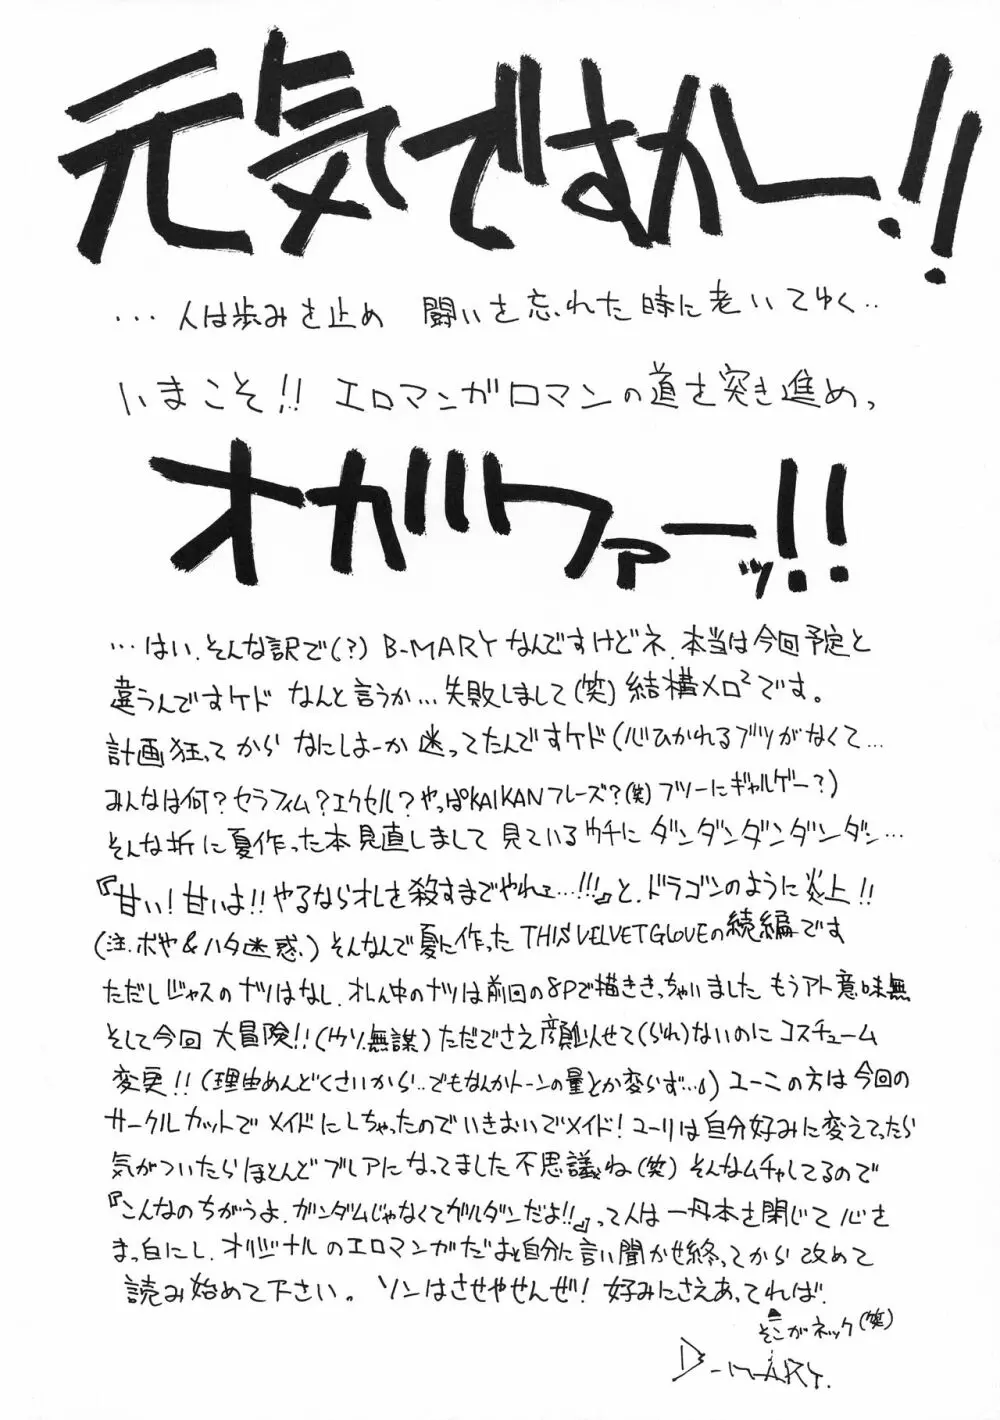 元気ですかー!!
…人は歩みを止め 闘いを忘れた時に老いてゆく‥
いまこそ!! エロマンガロマンの道を突き進めっ
オガワァーッ!!
…はい、そんな訳で(?) B-MARYなんですけどネ、本当は今回予定と
違うんですケド なんと言うか…失敗しまして(笑)結構メロ²です。
計画狂ってから なにしよーか 迷ってたんですケド(心ひかれるブツがなくて…
みんなは何?セラフィム?エクセル?やっぱKAIKANフレーズ?(笑)フツーにギャルゲー?)
そんな折に夏作った本見直しまして 見ているウチに ダンダンダンダンダン…
『甘い!甘いよ!!やるならオレを殺すまでやれェ…!!!』と、ドラゴンのように炎上!!
(注、ボヤ&ハタ迷惑。)そんなんで夏に作ったTHIS VELVET GLOVEの続編です
ただしジャスのナツはなし、オレん中のナツは前回の8Pで描ききっちゃいました もうアト意味無
そして今回 大冒険!!(ウソ、無謀)ただでさえ顔似せて(られ)ないのに コスチューム
変更!!(理由めんどくさいから‥でもなんかトーンの量とか変らず…♪)ユーこの方は今回の
サークルカットで メイドにしちゃったのでいきおいでメイド!ユーリは自分好みに変えてったら
気がついたらほとんどブレアになってました不思議ね(笑)そんなムチャしてるので
『こんなのちがうよ、ガンダムじゃなくてガルダンだよ!!』って人は 一旦本を閉じて 心を
まっ白にし、オリジナルのエロマンガだよと自分に言い聞かせ終ってから 改めて
読み始めて下さい。 ソンはさせやせんぜ! 好みにさえあってれば、
そこがネック(笑)
B-MARY.